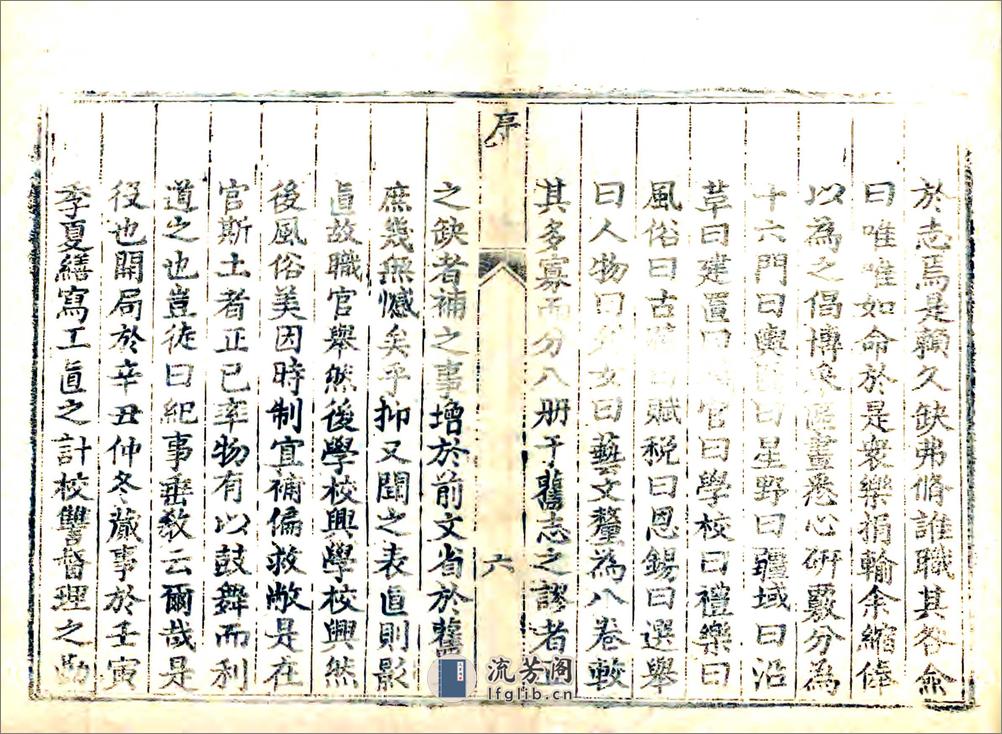 於志焉是賴久缺弗脩誰職其咎僉
曰唯唯如命於是衆樂捐輸余縮俸
以為之倡博採畫悉心研覈分為
十六門曰輿圖曰星野曰疆域曰沿
革曰建置曰官曰學校曰禮樂曰
風俗曰古賦稅曰恩錫曰選舉
曰人物曰列女曰藝文釐為八卷較
其多寡而分八册于舊志之謬者
序
六
之缺者補之事增於前文省於舊
庶幾無憾矣乎抑又聞之表直則影
直故職官舉然後學校興學校興然
後風俗美因時制宜補偏救敝是在
官斯土者正已率物有以鼓舞而利
道之也豈徒曰紀事垂敎云爾哉是
役也開局於辛丑仲冬蕆事於壬寅
季夏繕寫工直之計校讐督理之勤
流芳阁
lfglib.cn